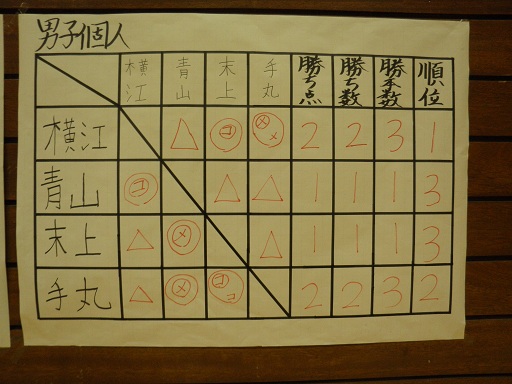 男子個人
横江 青山 末上 手丸 勝ち点 勝ち数 勝本数 順位
横江 △ コ メメ 2 2 3 1
青山 コ △ △ 1 1 1 3
末上 △ メ △ 1 1 1 3
手丸 △ メ ココ 2 2 3 2